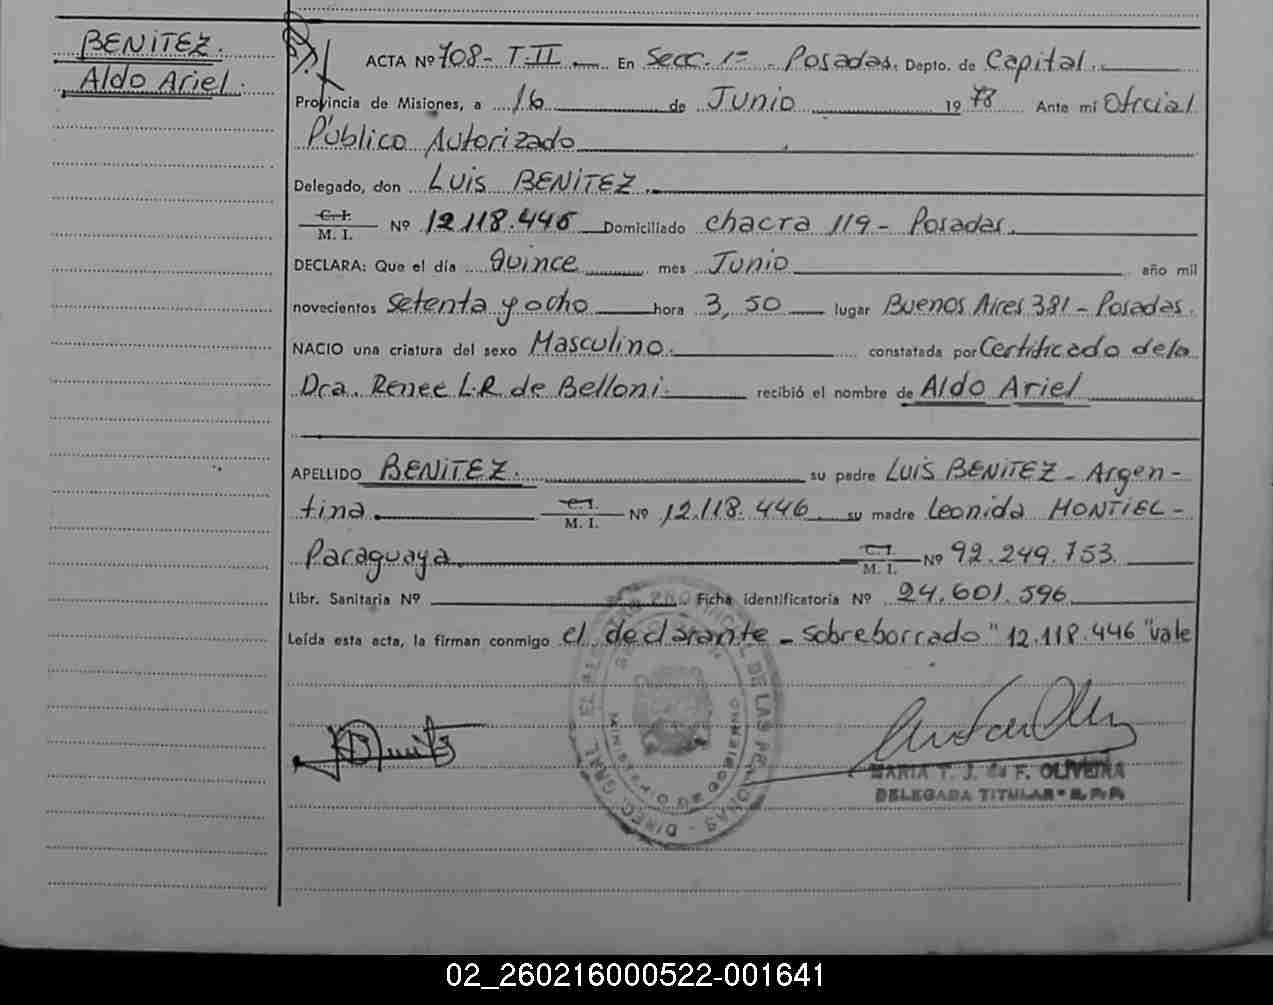 BENITEZ.
Aldo Ariel.
ACTA Nº 708- T.II. En Secc. 1ª - Posadas. Depto. de Capital.
Provincia de Misiones, a 16 de Junio 1978 Ante mi Oficial
Público Autorizado
Delegado, don Luis BENITEZ.
C. I.
M. I. Nº 12.118.446 Domiciliado chacra 119- Posadas.
DECLARA: Que el día Quince mes Junio año mil
novecientos setenta y ocho hora 3,50 lugar Buenos Aires 381 - Posadas.
NACIO una criatura del sexo Masculino. constatada por Certificado de la
Dra. Renee L.R. de Belloni. recibió el nombre de Aldo Ariel
APELLIDO BENITEZ. su padre Luis BENITEZ - Argen-
tina. C. I.
M. I. Nº 12.118.446 su madre Leonida MONTIEL-
Paraguaya. C. I.
M. I. Nº 92.249.753.
Libr. Sanitaria Nº Ficha identificatoria Nº 24.601.596
Leída esta acta, la firman conmigo el declarante - sobreborrado "12.118.446" vale
MARIA T. J. de F. OLIVEIRA
DELEGADA TITULAR - R. P. P.
02_260216000522-001641